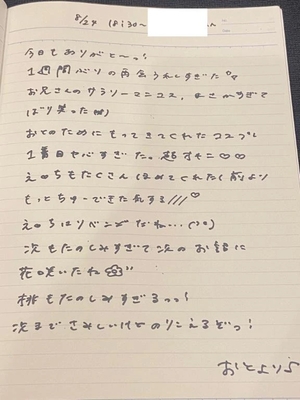 8/24 18:30~
今日もありがと〜っ!
1週間ぶりの再会うれしすぎた
お兄さんのサラリーマンコス、まさかすぎて
ばり笑った
おとのためにもってきてくれたコスプレ
1着目ヤバすぎた。超すき♡♡
えちもたくさんほめてくれた(前より
もっとちゅーできた気する///♡
えちはリベンジだね…
次もたのしみすぎて次のお話に
花咲いたね
桃もたのしみすぎるっっ!
次までさみしいけどのりこえるぞっ!
おとより